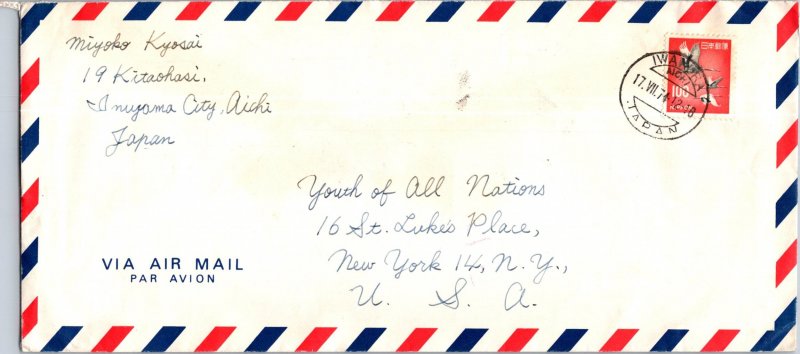 Miyoko Kyosai
19 Kitaohasi,
Inuyama City, Aichi
Japan
日本郵便
100
17.VII.74
JAPAN
Youth of All Nations
16 St. Luke's Place,
New York 14, N. Y.,
U. S. A.
VIA AIR MAIL
PAR AVION